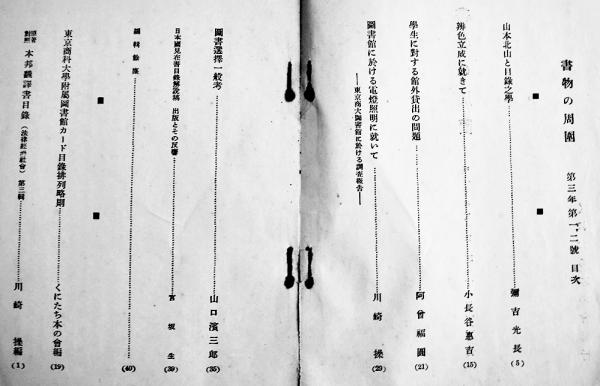 書物の周圍 第三年第一、二號 目次
山本北山と目錄之學 彌吉光長 (5)
辨色立成に就きて 小長谷惠吉 (15)
學生に對する館外貸出の問題 阿曾福圓 (21)
圖書館に於ける電燈照明に就いて 川崎操 (29)
——東京商大圖書館に於ける調査報告——
圖書選擇一般考 山口濱三郎 (35)
日本國見在書目錄解說稿 出版とその反響 宮坂生 (39)
編輯餘塵 (40)
東京商科大學附屬圖書館カード目錄排列略則 くにたち本の會編 (19)
原著對照 本邦飜譯書目錄 (法律經濟社會) 第二輯 川崎操編 (1)